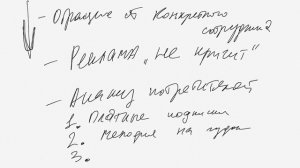 - Обращение от конкретного
сотрудника
- Реклама "не кричит"
- Анализ потребителей
1. Платные подписки
2. Мелодия на гудок
3.